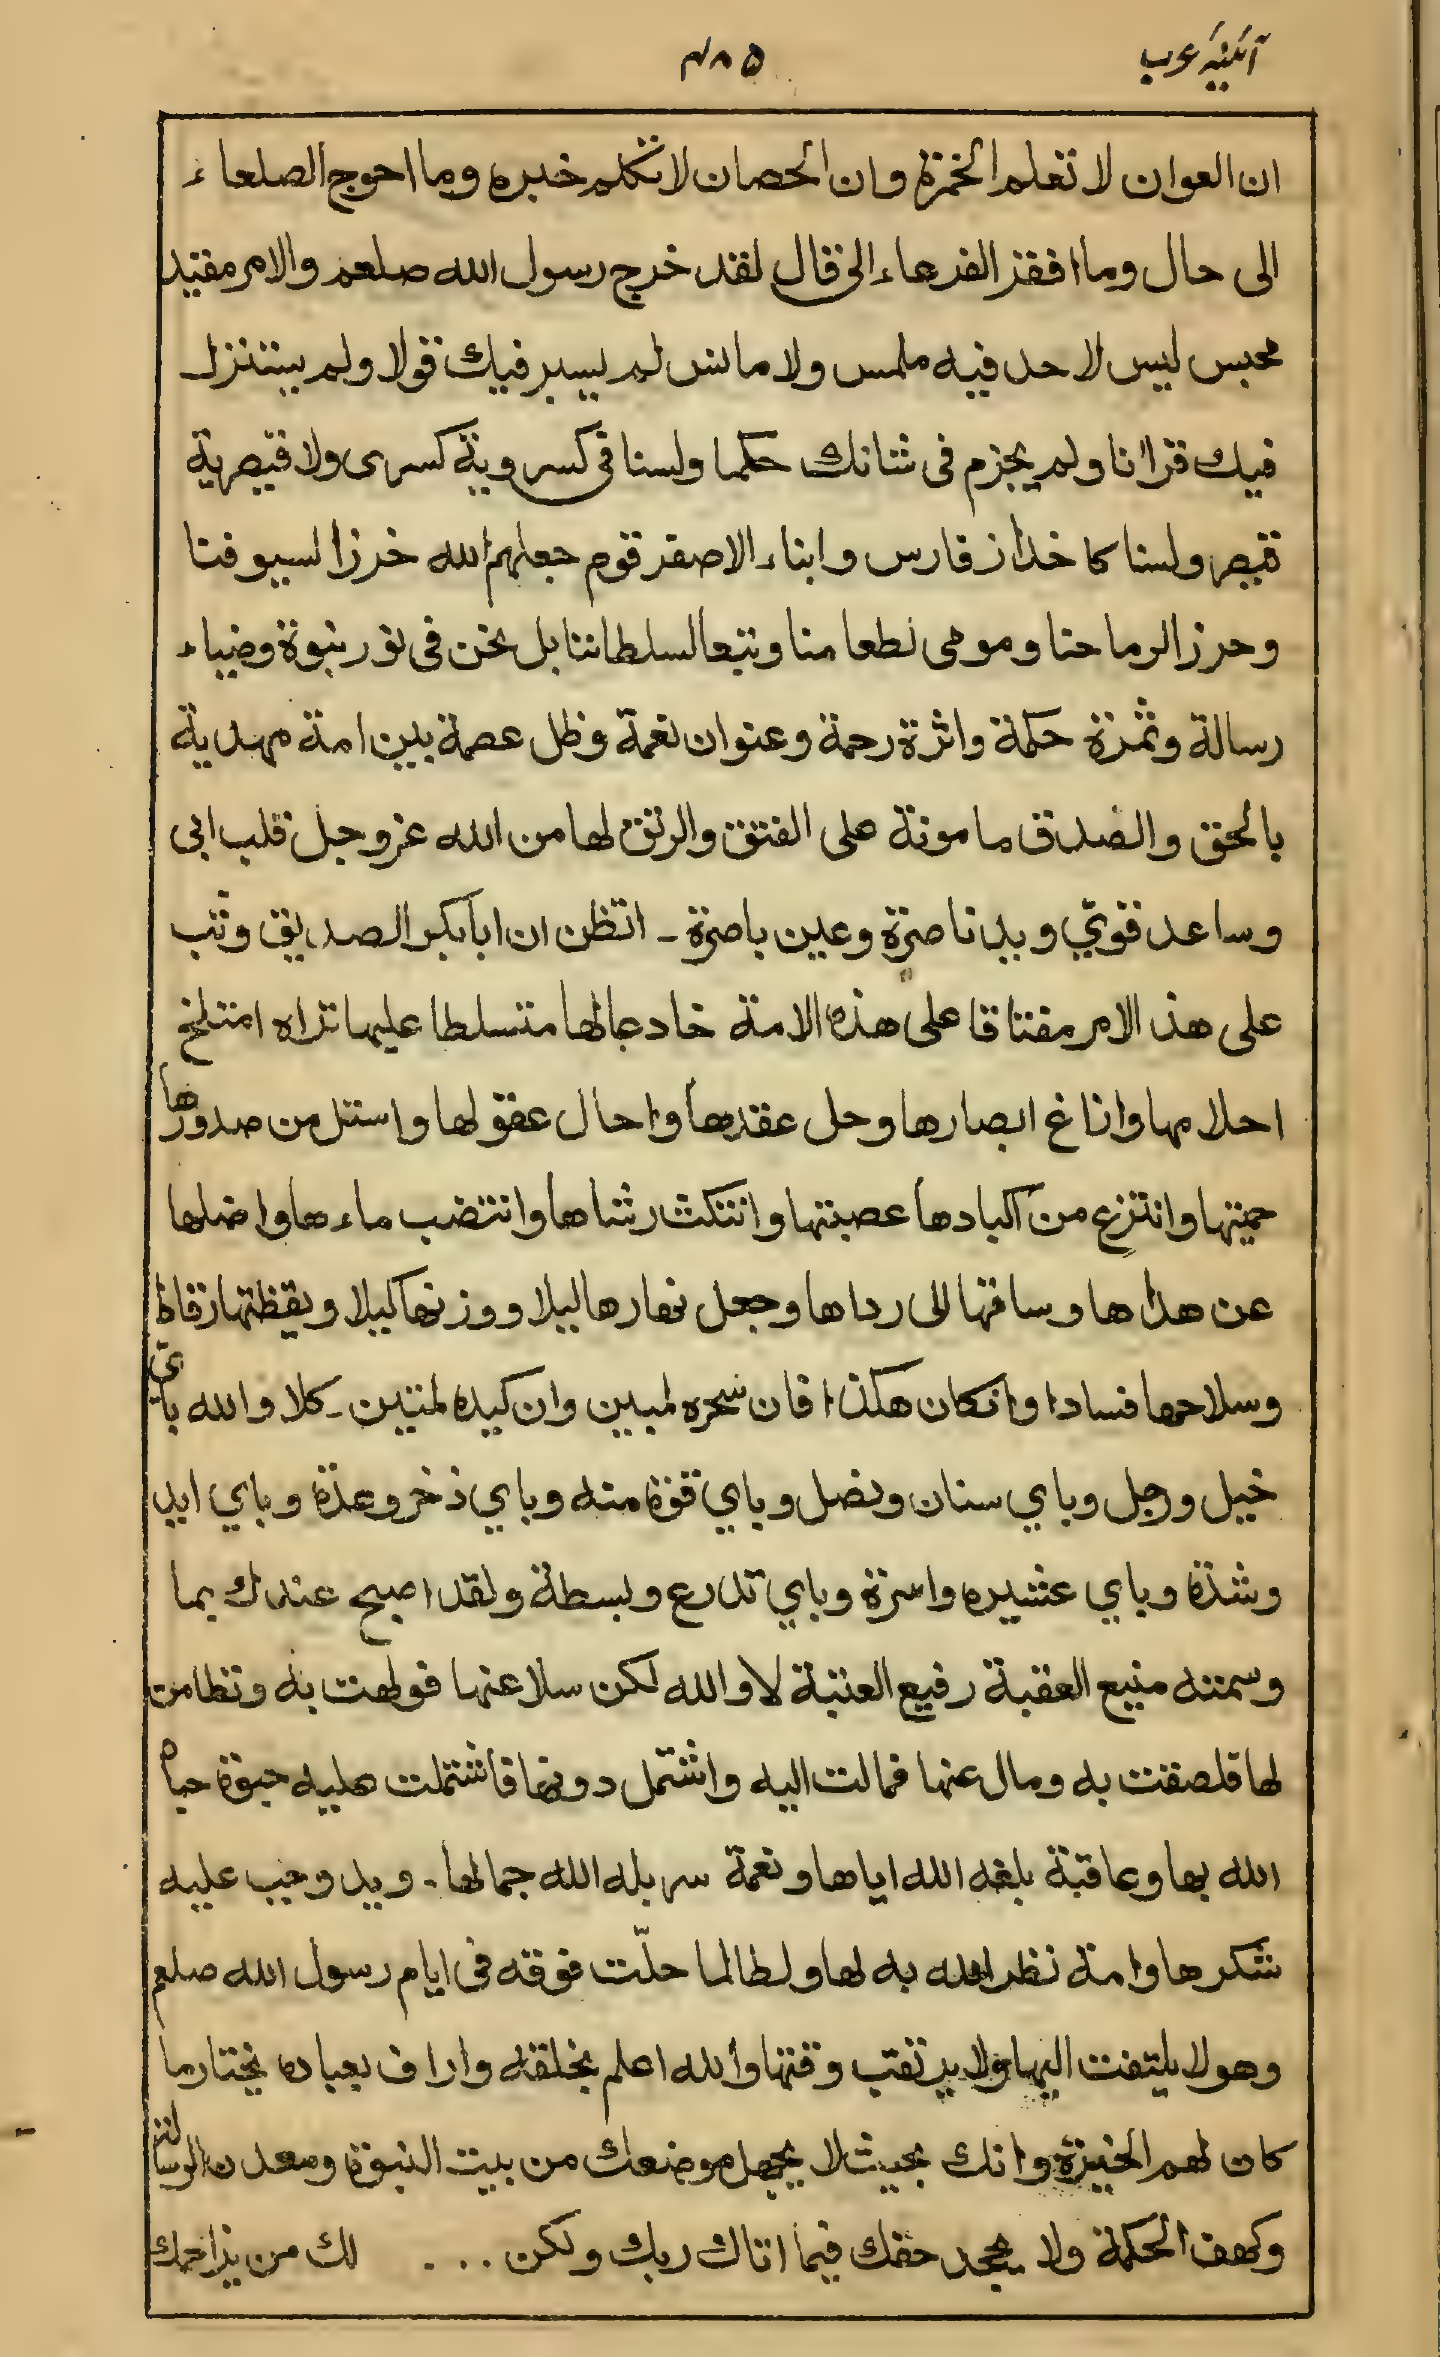 آئینہ عرب ۴۸۵
ان العوان لا تعلم الخمرة وان الحصان لا تكلم خبره وما احوج الصلعاء
الى حال وما افقر الفرعاء الى قال لقد خرج رسول الله صلعم والامر مقيد
محبس ليس لاحد فيه ملمس ولا مانس لم يسير فيك قولا ولم يستنزل
فيك قرانا ولم يجزم فى شانك حكما ولسنا فى كسروية كسرى ولا قيصرية
قيصر ولسنا كاخذان فارس وابناء الاصفر قوم جعلهم الله خرزا لسيوفنا
وحرزا لرماحنا ومرعى لطعامنا وتبعا لسلطاننا بل نحن فى نور نبوة وضياء
رسالة وثمرة حكمة واثرة رحمة وعنوان نعمة وظل عصمة بين امة مهدية
بالحق والصدق مامونة على الفتق والرتق لها من الله عز وجل قلب ابى
وساعد قوي ويد ناصرة وعين باصرة ـ اتظن ان ابابكر الصديق وثب
على هذا الامر مفتاقا على هذه الامة خادعا لها متسلطا عليها تراه امتلخ
احلامها وازاغ ابصارها وحل عقدها واحال عقولها واستل من صدورها
حميتها وانتزع من اكبادها عصبتها وانتكث رشاها وانتضب ماءها واضلها
عن هداها وساقها الى رداها وجعل نهارها ليلا ووزنها كيلا ويقظتها رقادا
وسلاحها فسادا وان كان هكذا فان سحره لمبين وان كيده لمتين ـ كلا والله باى
خيل ورجل وباي سنان ونصل وباي قوة منه وباي ذخر وعدة وباي ايد
وشدة وباي عشيره واسرة وباي تدرع وبسطة ولقد اصبح عندك بما
وسمته منيع العقبة رفيع العتبة لا والله لكن سلا عنها فولهت به وتطامن
لها فلصقت به ومال عنها فمالت اليه واشتمل دونها فاشتملت عليه حبوة حباه
الله بها وعاقبة بلغه الله اياها ونعمة سربله الله جمالها ـ ويد وجب عليه
شكرها وامة نظر الله به لها ولطالما حلّت فوقه فى ايام رسول الله صلعم
وهو لا يلتفت اليها ولا يرتقب وقتها والله اعلم بخلقه واراف بعباده يختار ما
كان لهم الخيرة وانك بحيث لا يجهل موضعك من بيت النبوة ومعدن الرسالة
وكهف الحكمة ولا يجحد حقك فيما اتاك ربك ولكن . . . . لك من يزاحمك